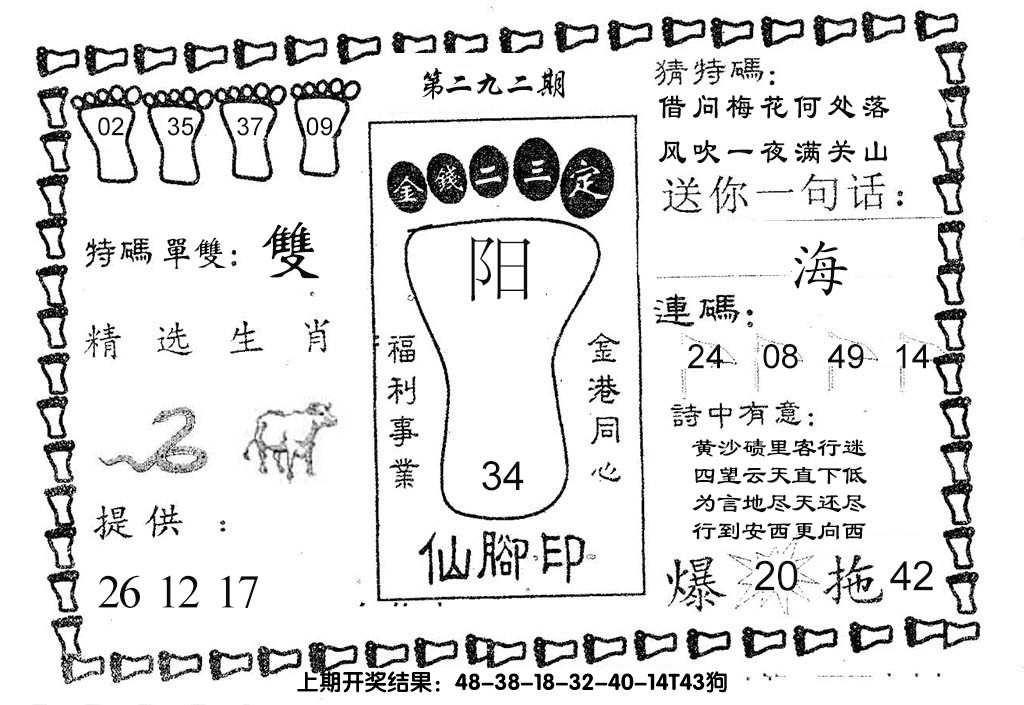 第二九二期
02 35 37 09
特碼單雙：雙
精选生肖
提供：
26 12 17
金錢二三定
阳
福利事業
金港同心
34
仙腳印
猜特碼：
借问梅花何处落
风吹一夜满关山
送你一句话：
海
連碼：
24 08 49 14
詩中有意：
黄沙碛里客行迷
四望云天直下低
为言地尽天还尽
行到安西更向西
爆 20 拖 42
上期开奖结果：48-38-18-32-40-14T43狗